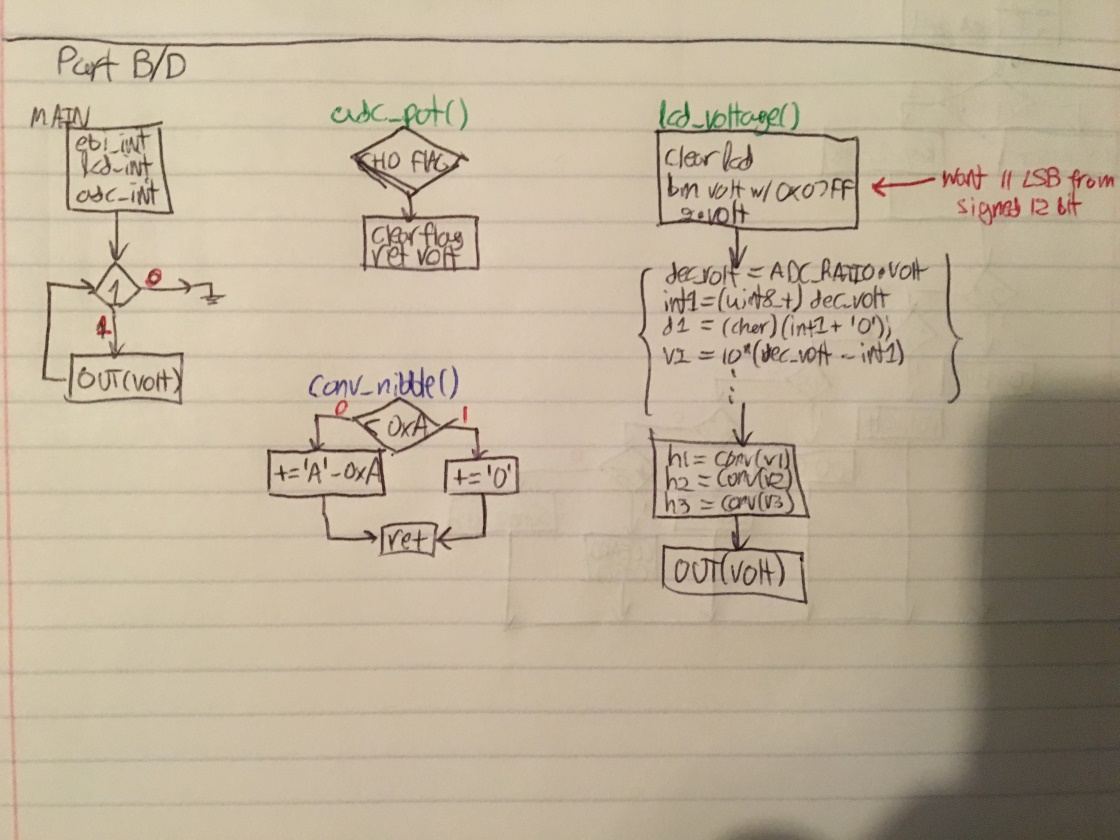 Part B/D
MAIN
ebi_int
lcd_int
adc_int
1
0
1
OUT(VOlt)
adc_pot()
CH0 FLAG
clear flag
ret volt
conv_nibble()
0
< 0xA
1
+='A'-0xA
+='0'
ret
lcd_voltage()
clear lcd
bm volt w/ 0x07FF
volt
want 11 LSB from
signed 12 bit
dec_volt = ADC_RATIO*VOlt
int1=(uint8_t) dec_volt
d1 = (char)(int1+'0');
V1 = 10*(dec_volt - int1)
h1 = conv(v1)
h2 = conv(v2)
h3 = conv(v3)
OUT(VOlt)